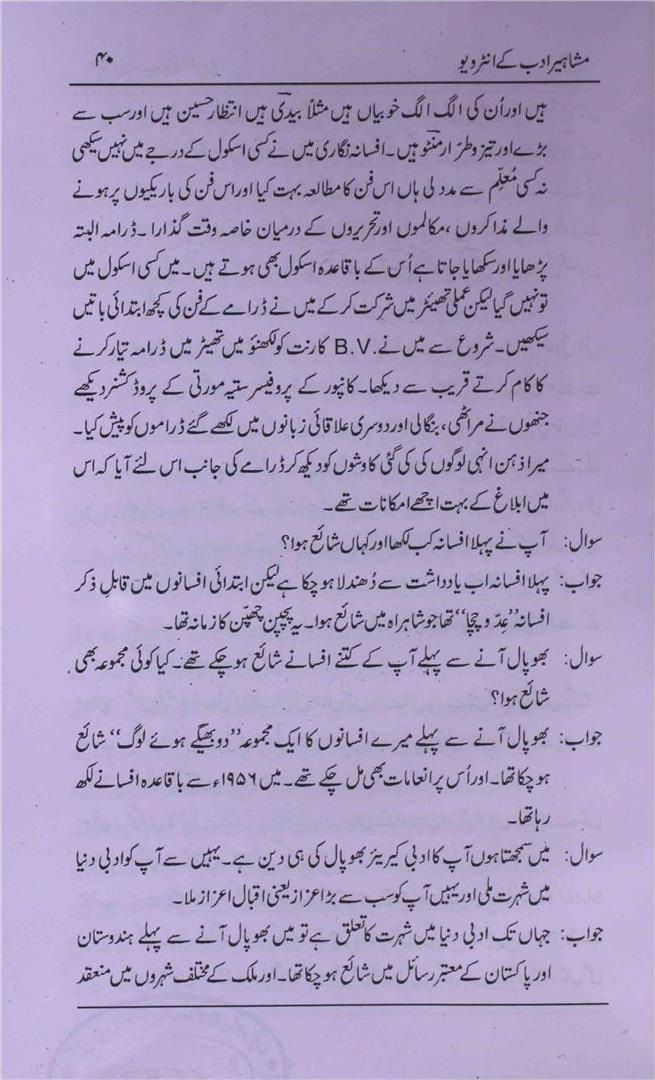 مشاہیر ادب کے انٹرویو
۴۰
ہیں اور اُن کی الگ الگ خوبیاں ہیں مثلاً بیدی ہیں انتظار حسین ہیں اور سب سے
بڑے اور تیز و طرّار منٹو ہیں۔ افسانہ نگاری میں نے کسی اسکول کے درجے میں نہیں سیکھی
نہ کسی مُعلّم سے مدد لی ہاں اس فن کا مطالعہ بہت کیا اور اس فن کی باریکیوں پر ہونے
والے مذاکروں، مکالموں اور تحریروں کے درمیان خاصہ وقت گذارا۔ ڈرامہ البتہ
پڑھایا اور سکھایا جاتا ہے اُس کے باقاعدہ اسکول بھی ہوتے ہیں۔ میں کسی اسکول میں
تو نہیں گیا لیکن عملی تھیئٹر میں شرکت کر کے میں نے ڈرامے کے فن کی کچھ ابتدائی باتیں
سیکھیں۔ شروع سے میں نے .B.V کارنت کو لکھنؤ میں تھیٹر میں ڈرامہ تیار کرنے
کا کام کرتے قریب سے دیکھا۔ کانپور کے پروفیسر ستیہ مورتی کے پروڈکشنز دیکھے
جنھوں نے مراٹھی، بنگالی اور دوسری علاقائی زبانوں میں لکھے گئے ڈراموں کو پیش کیا۔
میرا ذہن انہی لوگوں کی کی گئی کاوشوں کو دیکھ کر ڈرامے کی جانب اس لئے آیا کہ اس
میں ابلاغ کے بہت اچھے امکانات تھے۔
سوال: آپ نے پہلا افسانہ کب لکھا اور کہاں شائع ہوا؟
جواب: پہلا افسانہ اب یادداشت سے دُھندلا ہو چکا ہے لیکن ابتدائی افسانوں میں قابلِ ذکر
افسانہ ”عِدّو چچا“ تھا جو شاہراہ میں شائع ہوا۔ یہ پچپن چھپّن کا زمانہ تھا۔
سوال: بھوپال آنے سے پہلے آپ کے کتنے افسانے شائع ہو چکے تھے۔ کیا کوئی مجموعہ بھی
شائع ہوا؟
جواب: بھوپال آنے سے پہلے میرے افسانوں کا ایک مجموعہ ”دو بھیگے ہوئے لوگ“ شائع
ہو چکا تھا۔ اور اُس پر انعامات بھی مل چکے تھے۔ میں ۱۹۵۶ء سے باقاعدہ افسانے لکھ
رہا تھا۔
سوال: میں سمجھتا ہوں آپ کا ادبی کیریئر بھوپال کی ہی دین ہے۔ یہیں سے آپ کو ادبی دنیا
میں شہرت ملی اور یہیں آپ کو سب سے بڑا عزاز یعنی اقبال اعزاز ملا۔
جواب: جہاں تک ادبی دنیا میں شہرت کا تعلق ہے تو میں بھوپال آنے سے پہلے ہندوستان
اور پاکستان کے معتبر رسائل میں شائع ہو چکا تھا۔ اور ملک کے مختلف شہروں میں منعقد